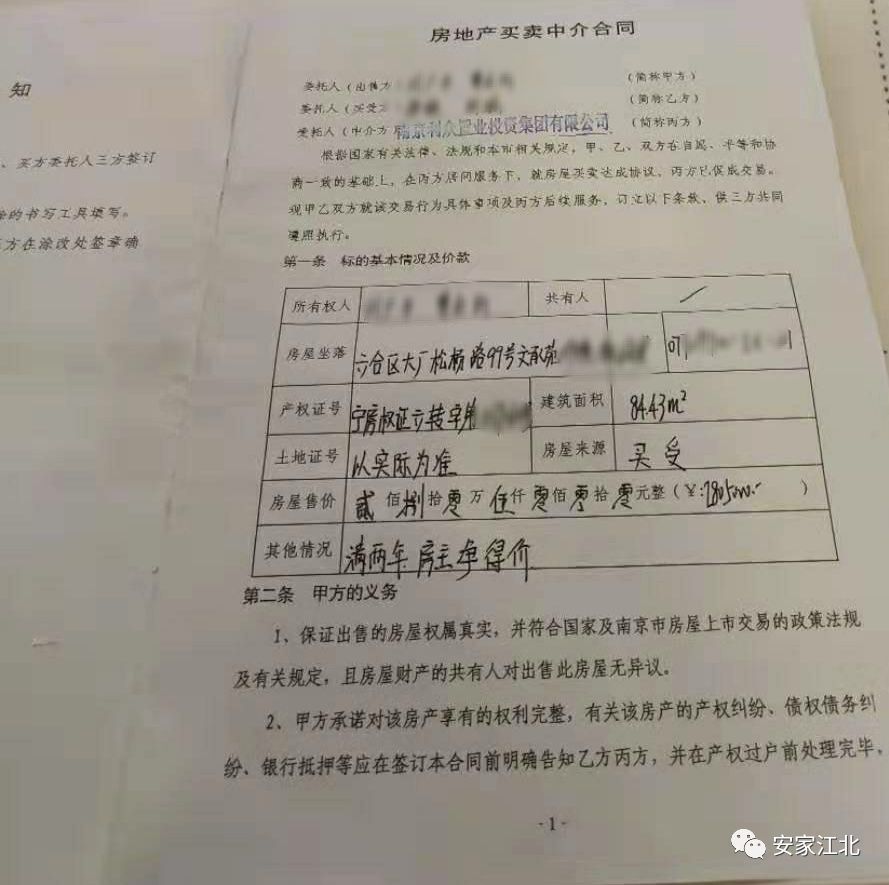 知
、买方委托人三方签订
的书写工具填写。
方在涂改处签章确
房地产买卖中介合同
委托人（出售方 （简称甲方）
委托人（买受方 （简称乙方）
委托人（中介方 南京利众置业投资集团有限公司 （简称丙方）
根据国家有关法律、法规和本市相关规定，甲、乙、双方在自愿、平等和协
商一致的基础上，在丙方居间服务下，就房屋买卖达成协议，丙方已促成交易。
现甲乙双方就该交易行为具体事项及丙方后续服务，订立以下条款，供三方共同
遵照执行。
第一条 标的基本情况及价款
所有权人 共有人 /
房屋坐落 六合区大厂松杨路99号文承苑 07
产权证号 宁房权证六转字第 建筑面积 84.43m²
土地证号 以实际为准 房屋来源 买受
房屋售价 贰佰捌拾零万伍仟零佰零拾零元整（¥:2805000.- ）
其他情况 满两年 房主净得价
第二条 甲方的义务
1、保证出售的房屋权属真实，并符合国家及南京市房屋上市交易的政策法规
及有关规定，且房屋财产的共有人对出售此房屋无异议。
2、甲方承诺对该房产享有的权利完整，有关该房产的产权纠纷、债权债务纠
纷、银行抵押等应在签订本合同前明确告知乙方丙方，并在产权过户前处理完毕，
- 1 -
安家江北